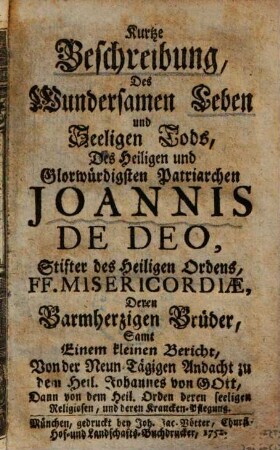 Kurtze
Beschreibung,
Des
Wundersamen Leben
und
Seeligen Tods,
Des Heiligen und
Glorwürdigsten Patriarchen
JOANNIS
DE DEO,
Stifter des Heiligen Ordens,
FF. MISERICORDIÆ,
Deren
Barmherzigen Brüder,
Samt
Einem kleinen Bericht,
Von der Neun-Tägigen Andacht zu
dem Heil. Johannes von GOtt,
Dann von dem Heil. Orden deren seeligen
Religiosen, und deren Krancken-Pflegung.
München, gedruckt bey Joh. Jac. Vötter, Churfl.
Hof-und Landschafts-Buchdrucker, 1752.